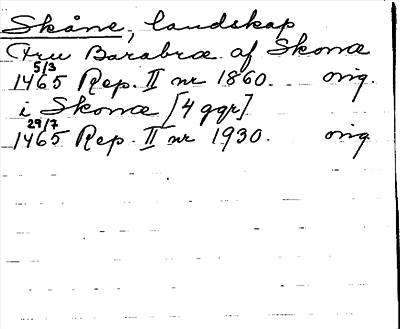 Skåne, landskap
Fru Barabræ af Skonæ
5/3
1465 Rep. II nr 1860. orig.
i Skonæ [4 ggr]
29/7
1465 Rep. II nr 1930. orig